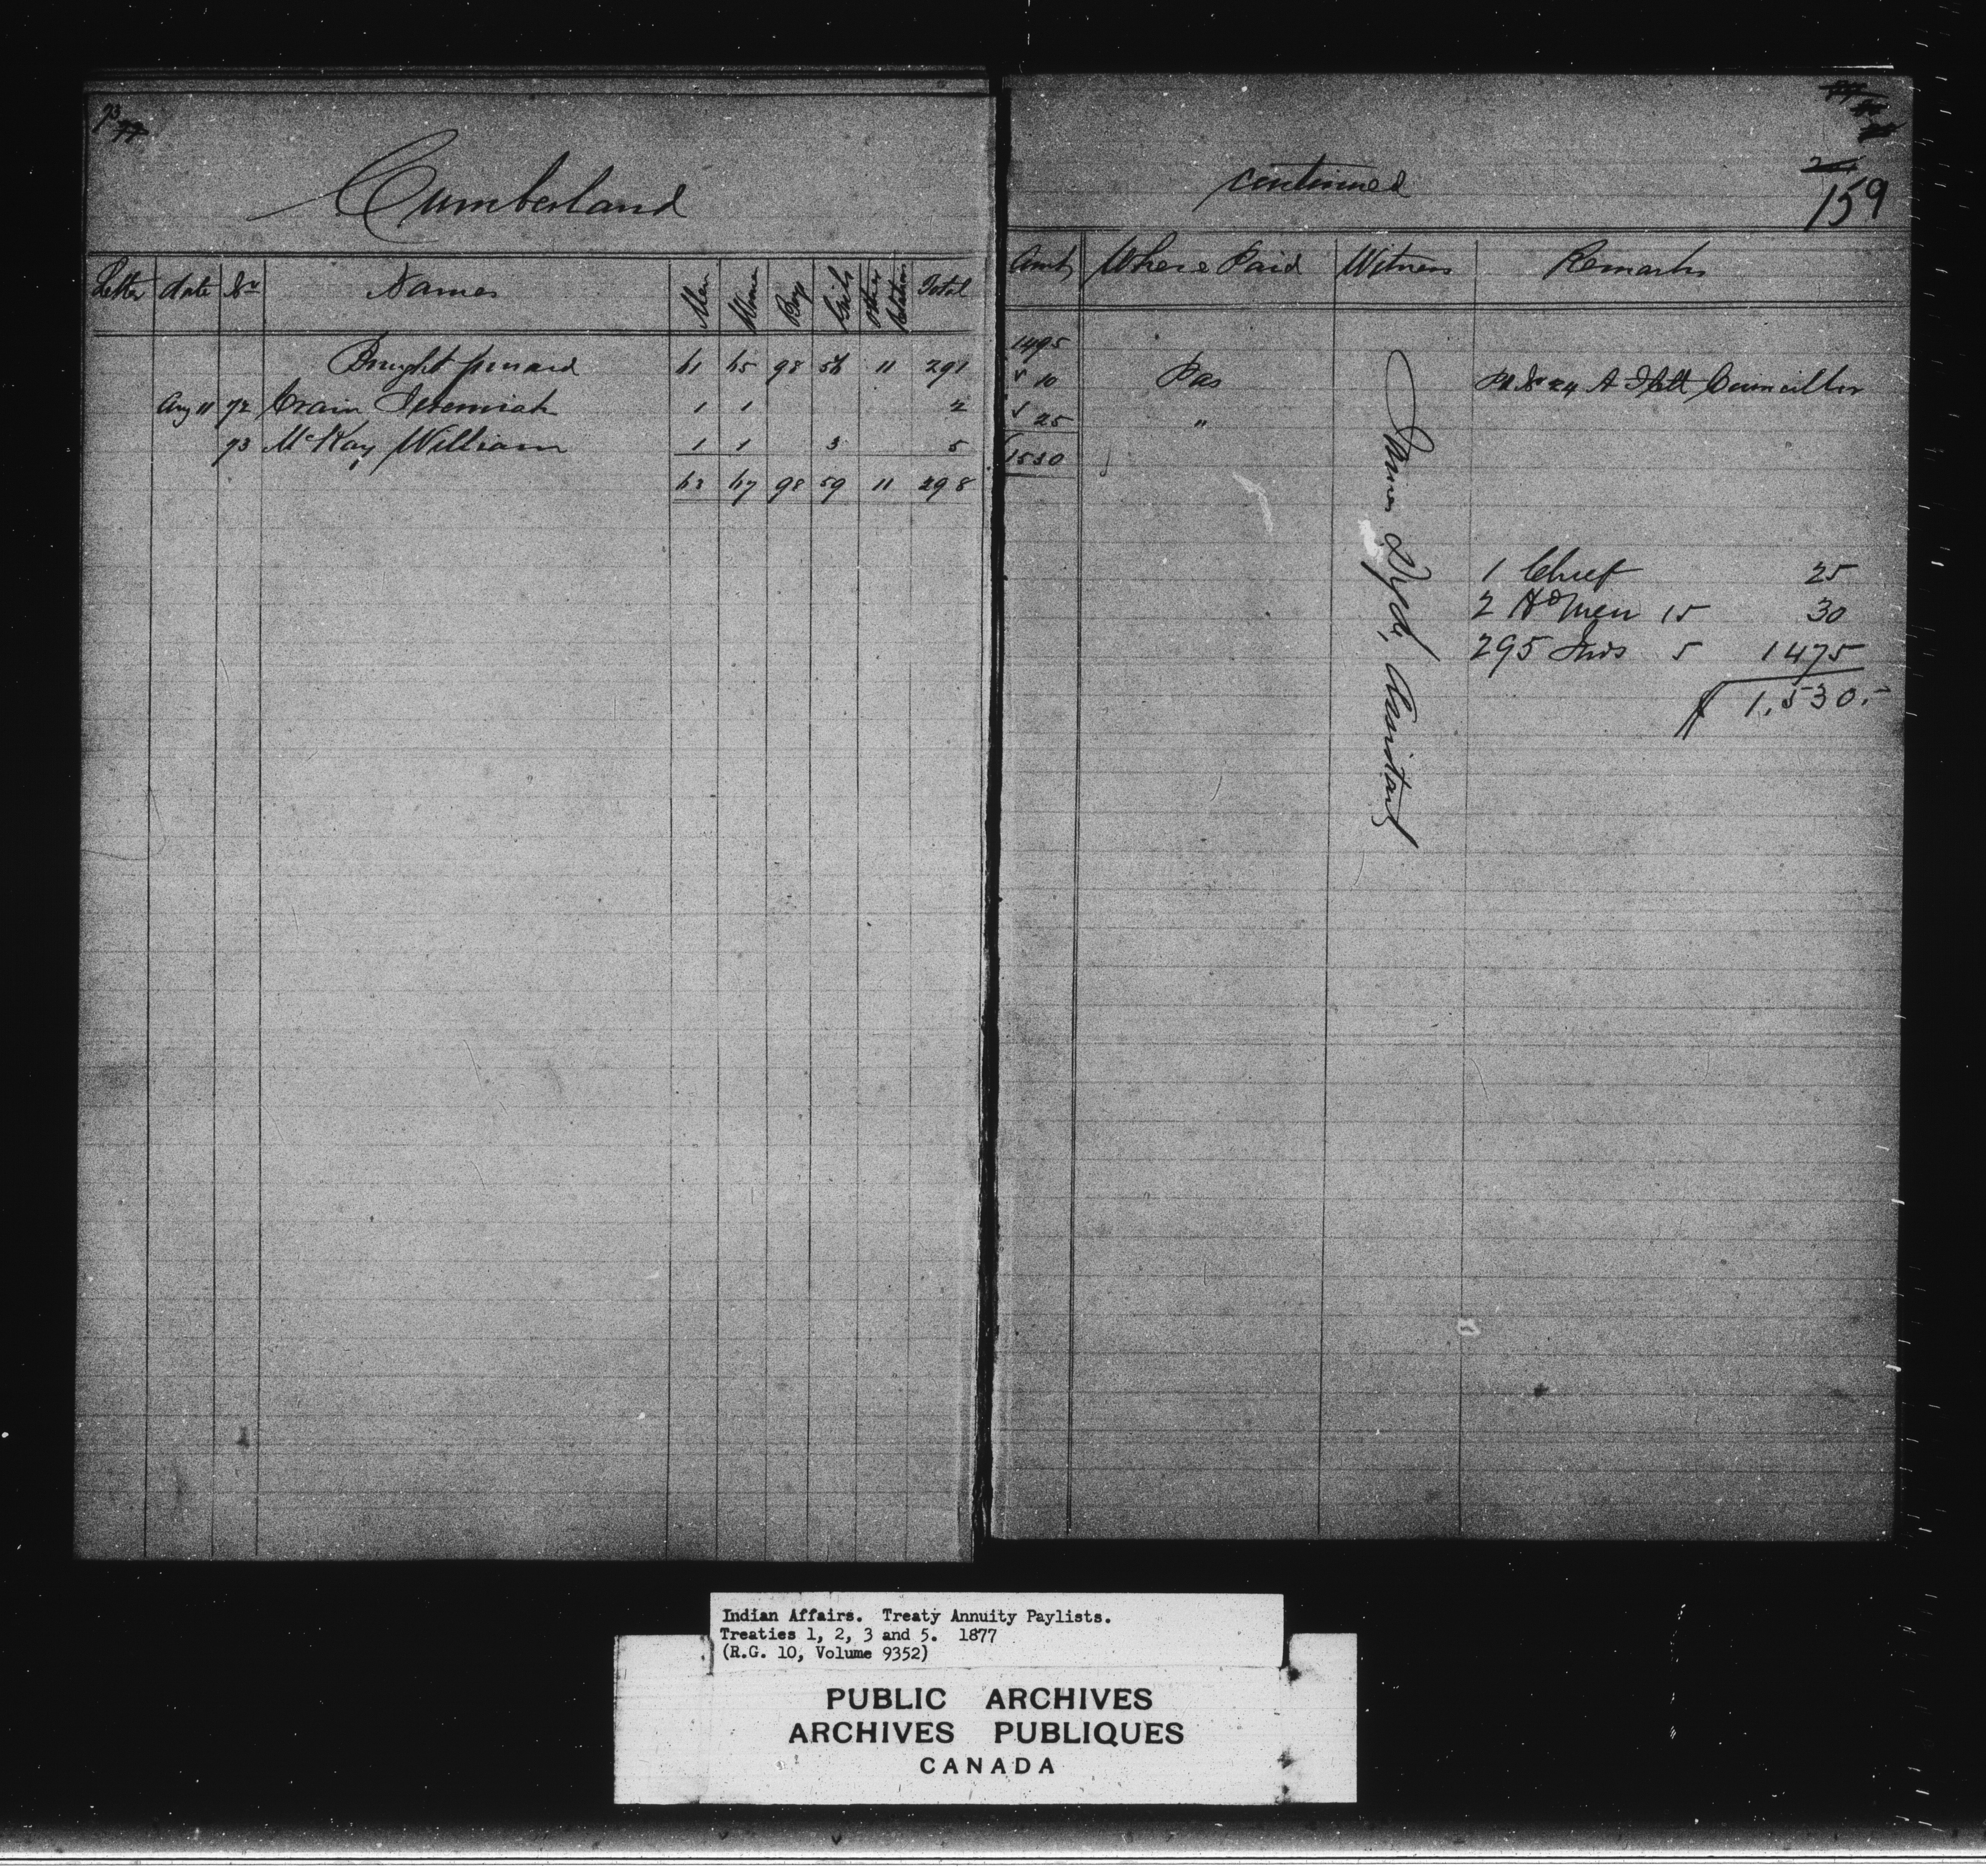 73
Cumberland
continued
159
Letter date No Names Men Women Boys Girls Other Relations Total Amt Where Paid Witness Remarks
Brought forward 61 65 98 56 11 291 1495
Aug 11 72 Crain Jeremiah 1 1 2 10 Pas Councillor
73 McKay William 1 1 3 5 25 "
63 67 98 59 11 298 1530
James Assistant
1 Chief 25
2 Hd men 15 30
295 Inds 5 1475
$ 1,530.-
Indian Affairs. Treaty Annuity Paylists.
Treaties 1, 2, 3 and 5. 1877
(R.G. 10, Volume 9352)
PUBLIC ARCHIVES
ARCHIVES PUBLIQUES
CANADA